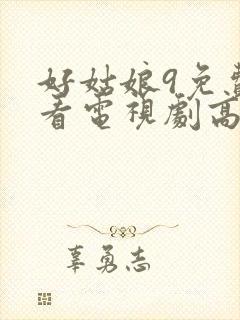 好姑娘9免費
看電視劇高
辜勇志